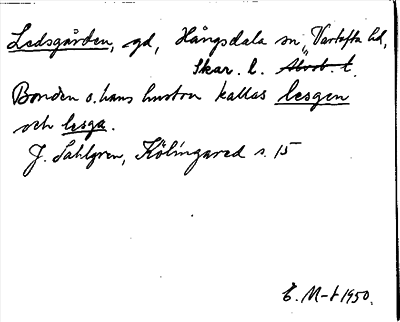 Ledsgården, gd, Hångsdala sn, Vartofta hd,
Skar. l.
Bonden o. hans hustru kallas lesgen
och lesga.
J. Sahlgren, Kölingared s. 15
E. M-t 1950.